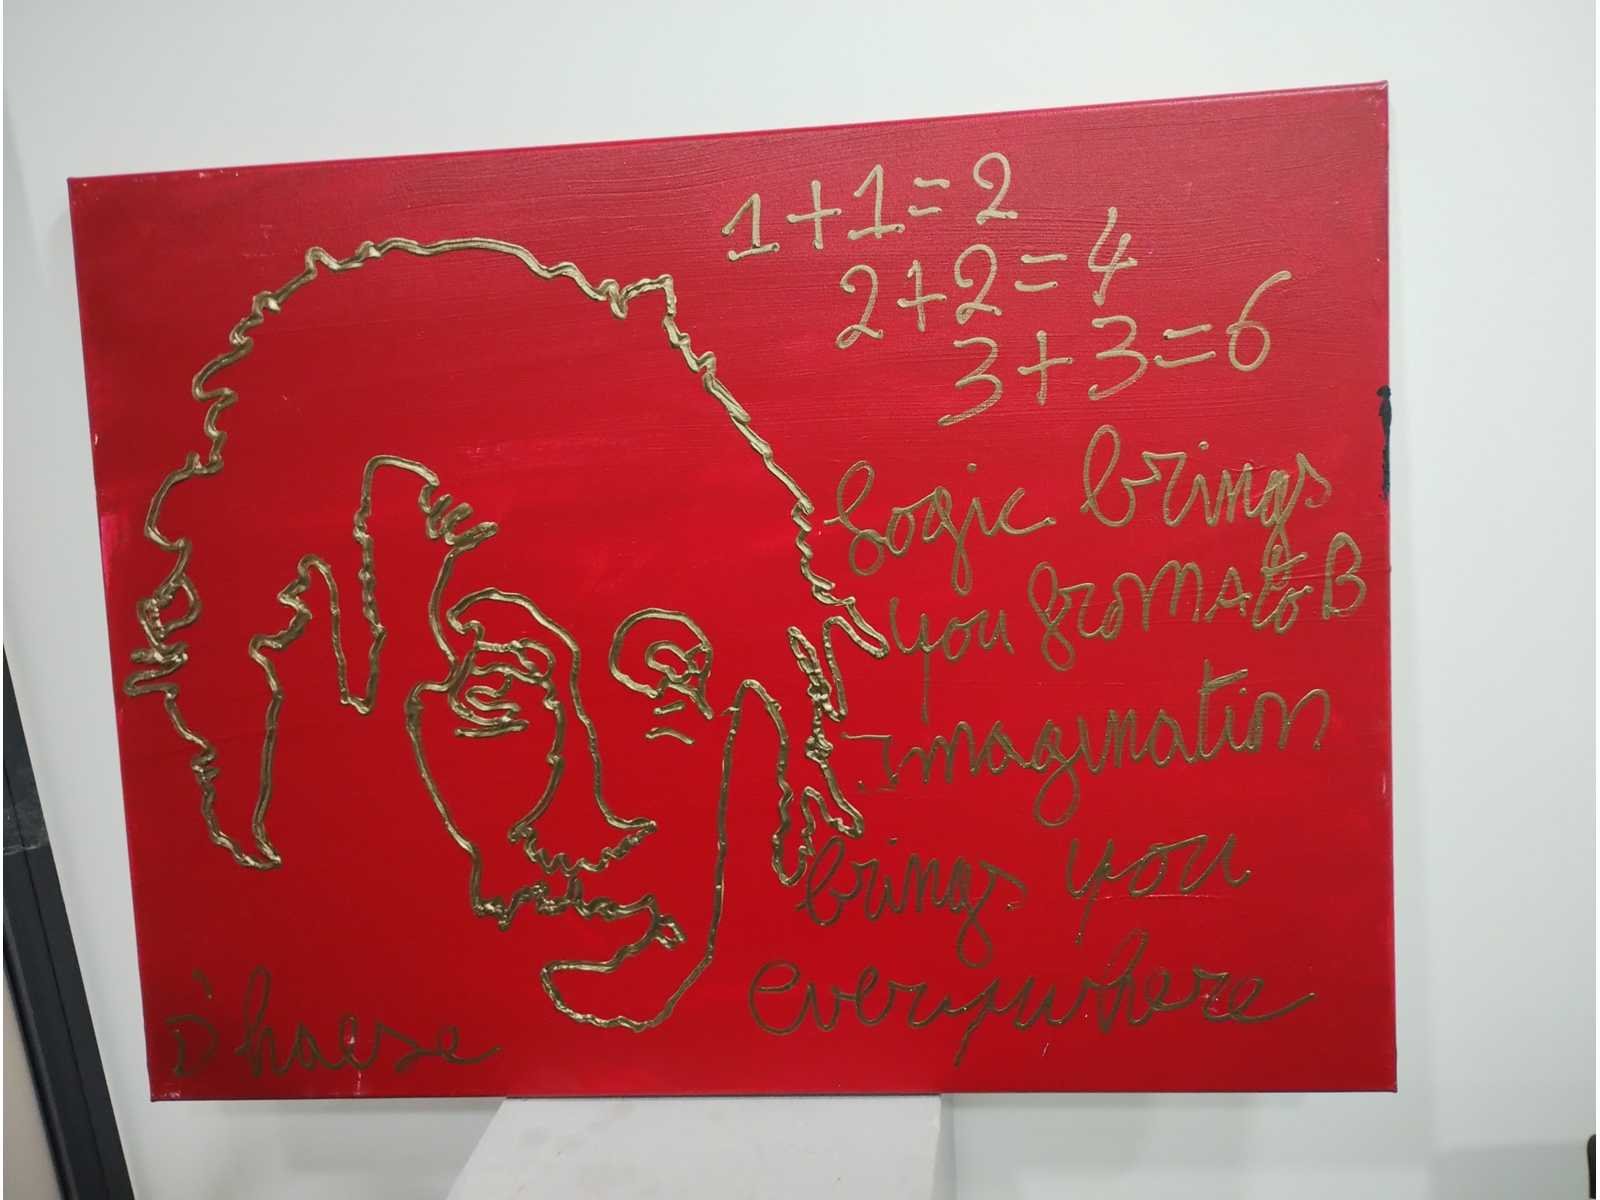 1+1=2
2+2=4
3+3=6
Logic brings
you from A to B
Imagination
brings you
everywhere
D'haese